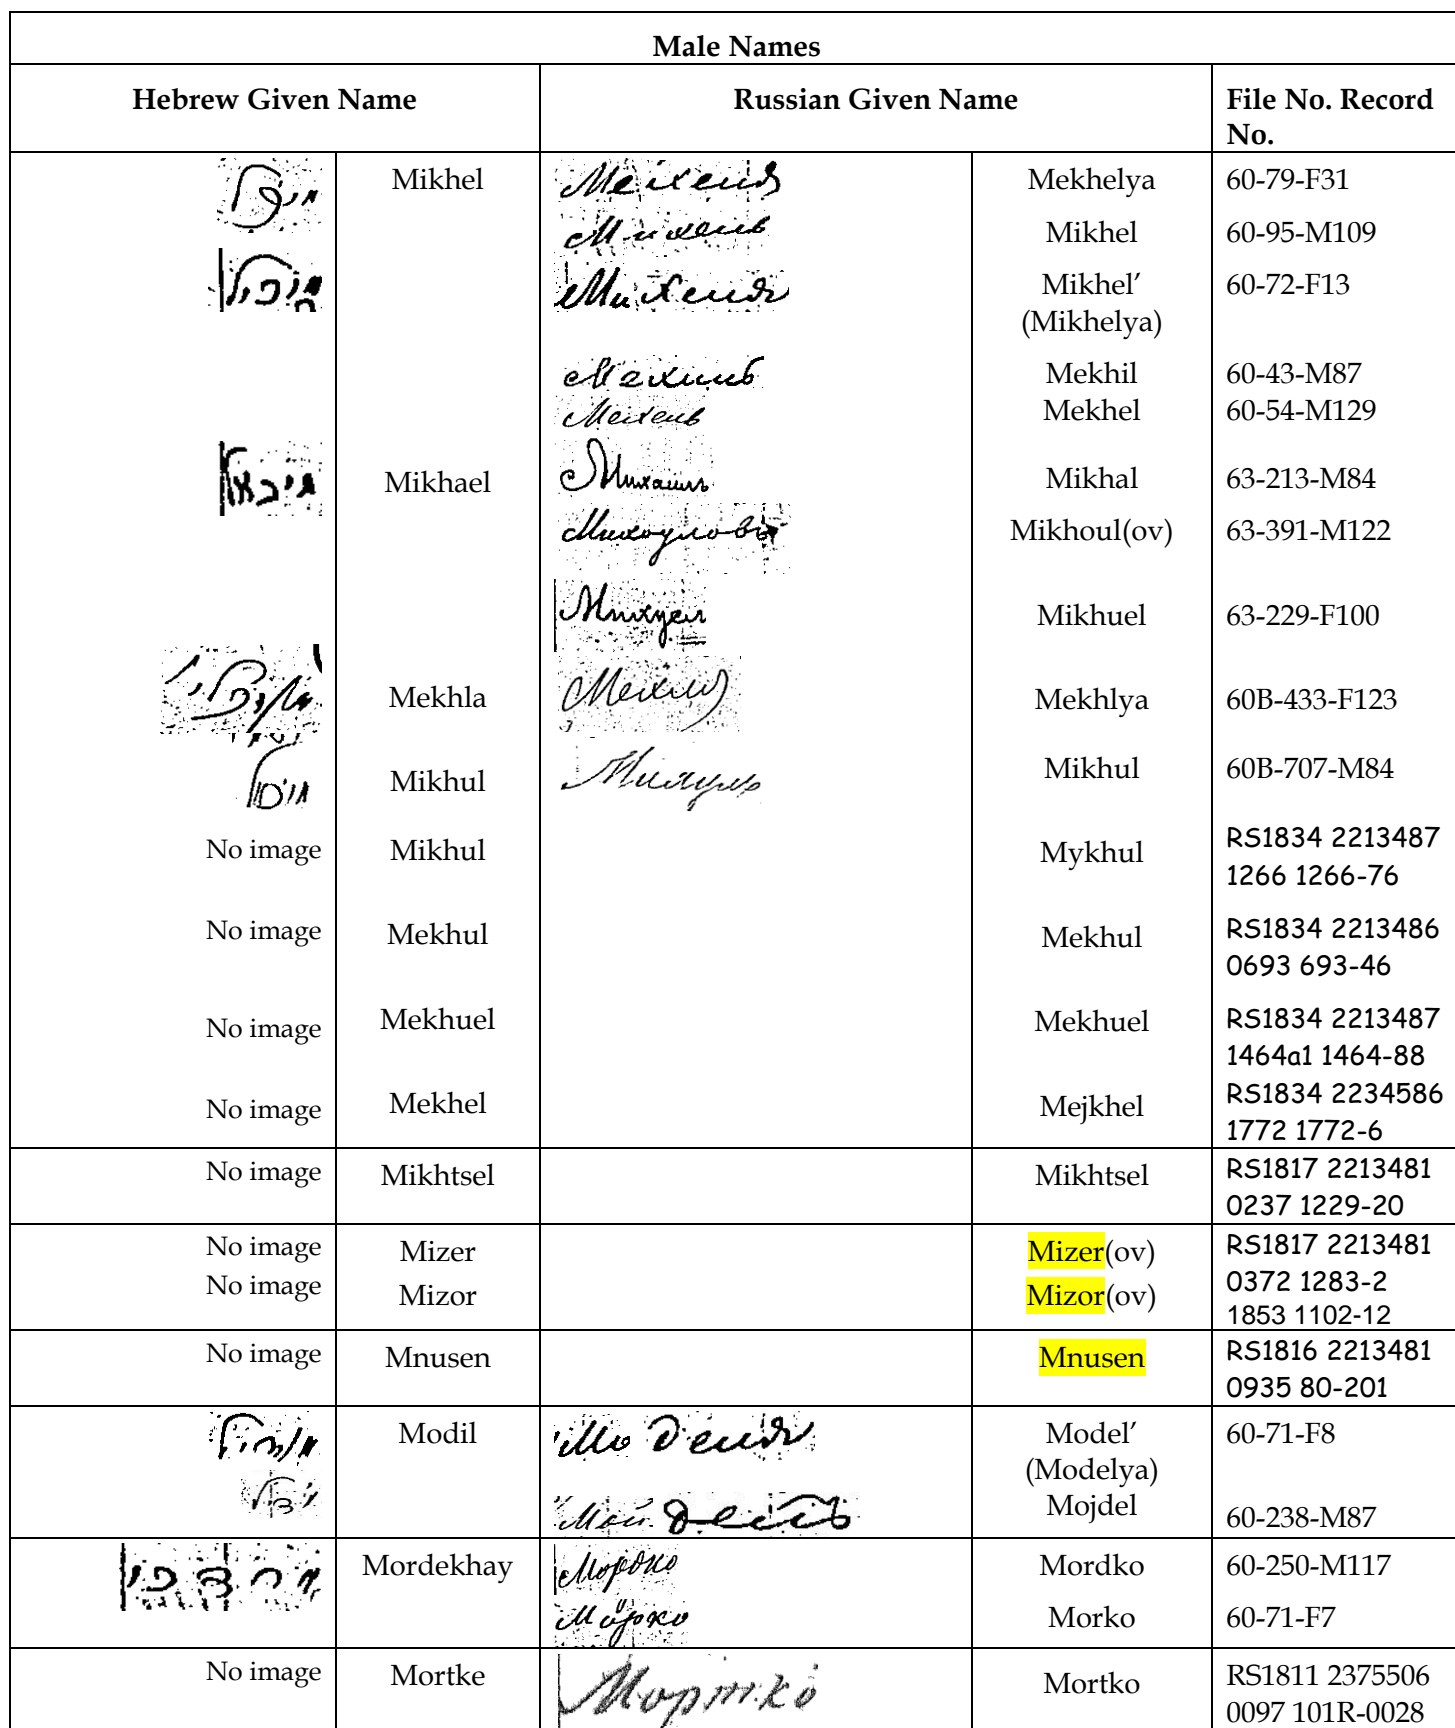 Male Names
Hebrew Given Name Russian Given Name File No. Record No.
Mikhel Мехеля Mekhelya 60-79-F31
Михель Mikhel 60-95-M109
מיכיל Михеля Mikhel’ (Mikhelya) 60-72-F13
Мехиль Mekhil 60-43-M87
Мехель Mekhel 60-54-M129
מיכאל Mikhael Mikhal 63-213-M84
Михоуловъ Mikhoul(ov) 63-391-M122
Михуел Mikhuel 63-229-F100
Mekhla Мехля Mekhlya 60B-433-F123
Mikhul Михуль Mikhul 60B-707-M84
No image Mikhul Mykhul RS1834 2213487
1266 1266-76
No image Mekhul Mekhul RS1834 2213486
0693 693-46
No image Mekhuel Mekhuel RS1834 2213487
1464a1 1464-88
No image Mekhel Mejkhel RS1834 2234586
1772 1772-6
No image Mikhtsel Mikhtsel RS1817 2213481
0237 1229-20
No image Mizer Mizer(ov) RS1817 2213481
0372 1283-2
No image Mizor Mizor(ov) 1853 1102-12
No image Mnusen Mnusen RS1816 2213481
0935 80-201
Modil Моделя Model’ (Modelya) 60-71-F8
Мойдель Mojdel 60-238-M87
מרדכי Mordekhay Мордко Mordko 60-250-M117
Морко Morko 60-71-F7
No image Mortke Мортко Mortko RS1811 2375506
0097 101R-0028